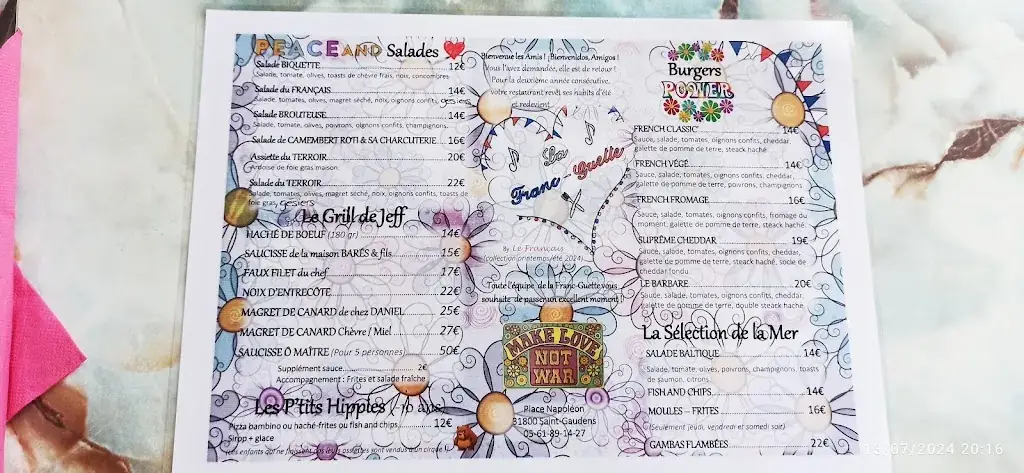 PEACE AND Salades
Salade BIQUETTE 12€
Salade, tomate, olives, toasts de chèvre frais, noix, concombres
Salade du FRANÇAIS 14€
Salade, tomates, olives, magret séché, noix, oignons confits, gésiers
Salade BROUTEUSE 14€
Salade, tomate, olives, poivrons, oignons confits, champignons.
Salade de CAMEMBERT ROTI & SA CHARCUTERIE 16€
Assiette du TERROIR 20€
Ardoise de foie gras maison
Salade du TERROIR 22€
Salade, tomates, olives, magret séché, noix, oignons confits, toasts de
foie gras, gesiers
Le Grill de Jeff
HACHÉ DE BOEUF (180 gr) 14€
SAUCISSE de la maison BARÉS & fils 15€
FAUX FILET du chef 17€
NOIX D'ENTRECÔTE 22€
MAGRET DE CANARD de chez DANIEL 25€
MAGRET DE CANARD Chèvre / Miel 27€
SAUCISSE Ô MAÎTRE (Pour 5 personnes) 50€
Supplément sauce 2€
Accompagnement : Frites et salade fraîche
Les P'tits Hippies (-10 ans)
Pizza bambino ou haché-frites ou fish and chips 12€
Sirop + glace
(Les enfants qui ne finissent pas leurs assiettes sont vendus à un cirque !)
Bienvenue les Amis ! Bienvenidos, Amigos !
Vous l'avez demandée, elle est de retour !
Pour la deuxième année consécutive,
votre restaurant revêt ses habits d'été
et redevient
La
Franc Guette
By Le Français
(collection printemps/été 2024)
Toute l'équipe de la Franc-Guette vous
souhaite de passer un excellent moment !
MAKE LOVE
NOT
WAR
Place Napoléon
31800 Saint-Gaudens
05-61-89-14-27
Burgers
POWER
FRENCH CLASSIC' 14€
Sauce, salade, tomates, oignons confits, cheddar,
galette de pomme de terre, steack haché
FRENCH VÉGÉ 14€
Sauce, salade, tomates, oignons confits, cheddar,
galette de pomme de terre, poivrons, champignons.
FRENCH FROMAGE 16€
Sauce, salade, tomates, oignons confits, fromage du
moment, galette de pomme de terre, steack haché.
SUPRÊME CHEDDAR 19€
Sauce, salade, tomates, oignons confits, cheddar,
galette de pomme de terre, steack haché, socle de
cheddar fondu
LE BARBARE 20€
Sauce, salade, tomates, oignons confits, cheddar,
galette de pomme de terre, double steack haché.
La Sélection de la Mer
SALADE BALTIQUE 14€
Salade, tomate, olives, poivrons, champignons, toasts
de saumon, citrons
FISH AND CHIPS 14€
MOULES – FRITES 16€
(Seulement jeudi, vendredi et samedi soir)
GAMBAS FLAMBÉES 22€
13/07/2024 20:16